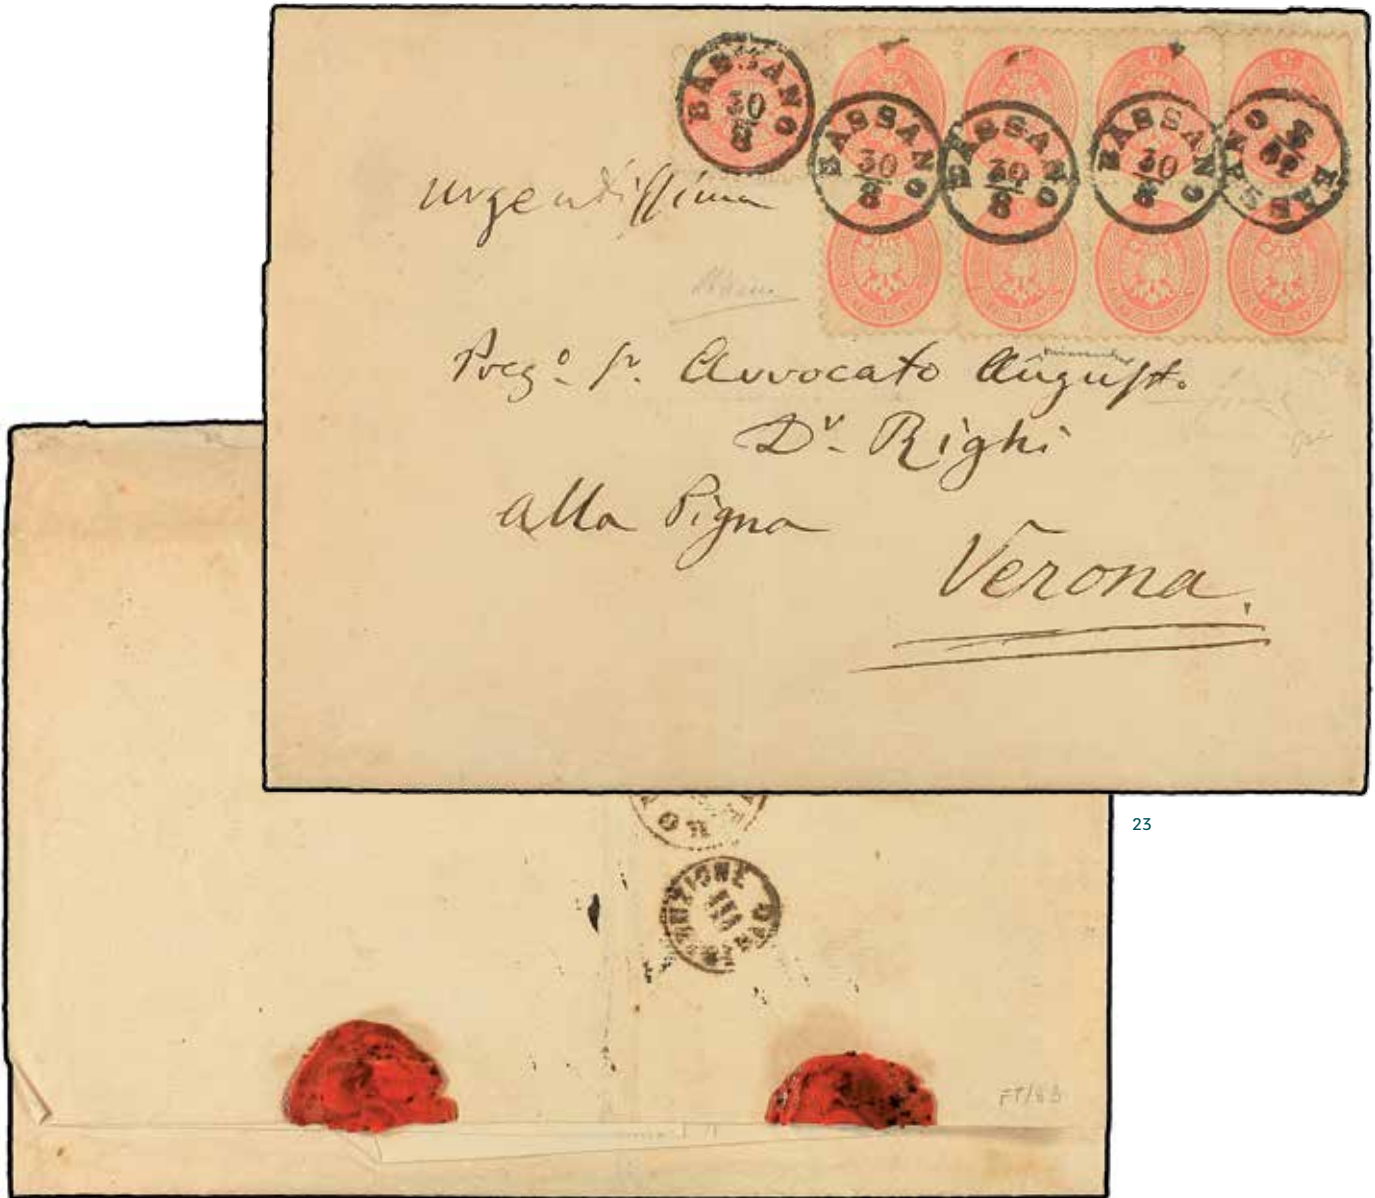 BASSANO
30
8
BASSANO
30
8
BASSANO
30
8
BASSANO
30
8
BASSANO
30
8
urgentissima
Preg.º Sr. Avvocato August.
Dr. Righi
alla Pigna
Verona.
23
III
FT/83